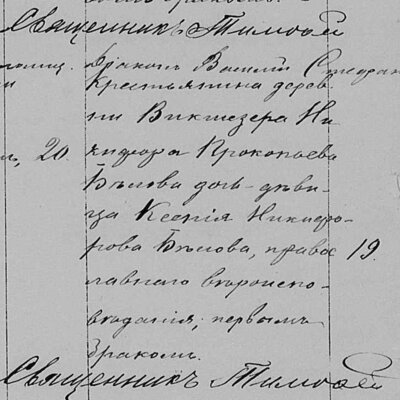 Священникъ Тимоѳей
Дьяконъ Василій Стефан
Крестьянина дерев-
ни Викшезера Ни-
20. кифора Прокопьева
Бѣлова дочь-дѣви-
ца Ксенія Никифо-
рова Бѣлова, правос 19.
лавнаго вѣроиспо-
вѣданія, первымъ
бракомъ.
Священникъ Тимоѳей